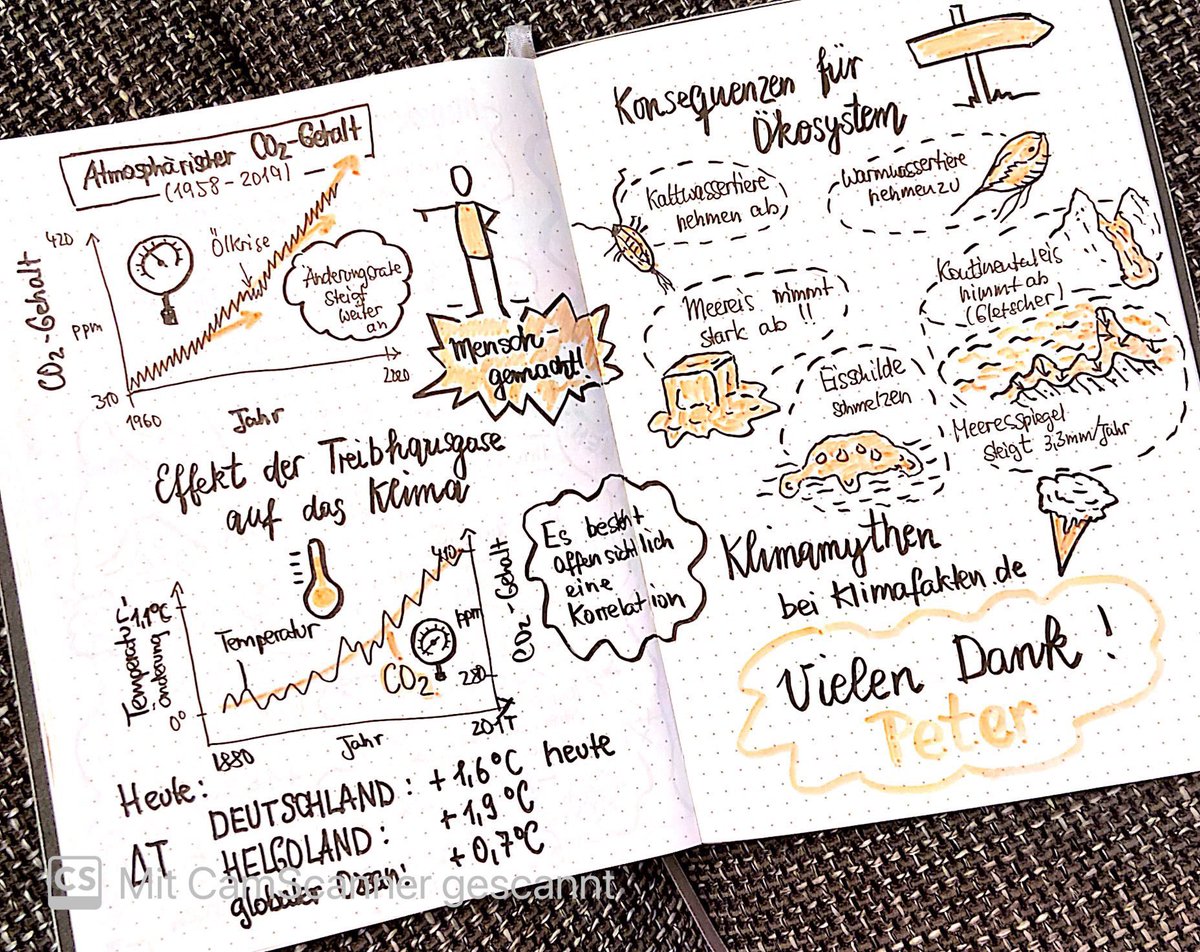 Atmosphärischer CO₂-Gehalt
(1958-2019)
CO₂-Gehalt
420
ppm
310
Ölkrise
Änderungsrate
steigt
weiter
an
1960
Jahr
2020
Mensch-
gemacht!
Effekt der Treibhausgase
auf das Klima
Temperatur-
änderung
1,1°C
0°
Temperatur
CO₂
410
ppm
280
CO₂-Gehalt
1880
Jahr
2017
Es besteht
offensichtlich
eine
Korrelation
Heute:
ΔT
DEUTSCHLAND: +1,6°C heute
HELGOLAND: +1,9°C
globaler Ozean: +0,7°C
Konsequenzen für
Ökosystem
Kaltwassertiere
nehmen ab
Warmwassertiere
nehmen zu
Meereis nimmt
stark ab !!
Kontinentaleis
nimmt ab
(Gletscher)
Eisschilde
schmelzen
Meeresspiegel
steigt 3,3mm/Jahr
Klimamythen
bei Klimafakten.de
Vielen Dank!
Peter
CS Mit CamScanner gescannt